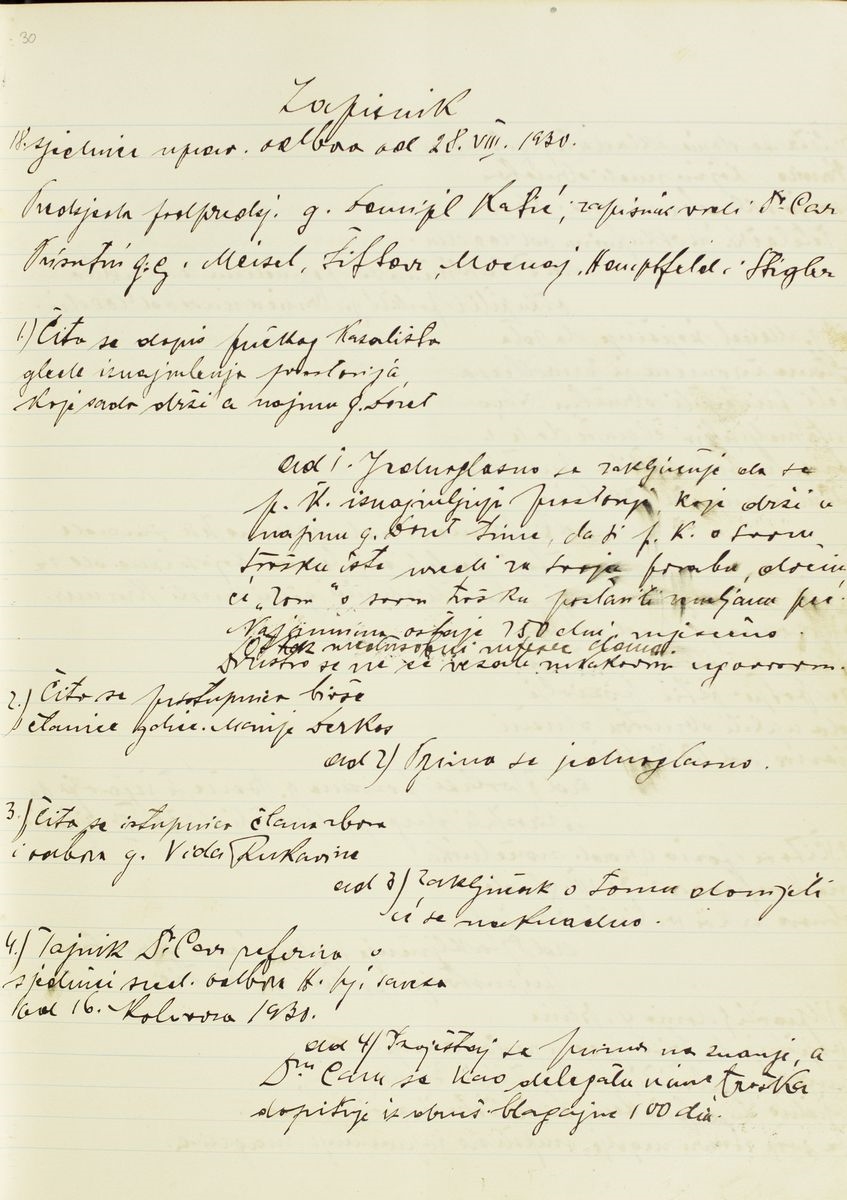 30
Zapisnik
18. sjednice uprav. odbora od 28. VIII. 1930.
Predsjeda podpredsj. g. Kašić, zapisnik vodi Dr. Car
Prisutni g.g. Meisel, Moenaj, Hauptfeld i Stigler
1.) Čita se dopis pučkog kazališta
glede iznajmlenja prostorija,
koje sada drži u najmu g. Doret
ad 1. Jednoglasno se zaključuje da se
p. K. iznajmljuje prostorije, koje drži u
najmu g. Doret time, da si p. K. o svom
trošku iste uredi za svoju porabu, dočim
će „Dom" o svom trošku postaviti zemljanu peć.
Najamnina ostaje 750 din. mjesečno.
Otkaz mjesec dana.
Društvo se ne će vezati nikakovim ugovorom.
2.) Čita se pristupnica bivše
članice gdice. Marije Derkos
ad 2) Prima se jednoglasno.
3.) Čita se istupnica člana zbora
i odbora g. Vida Rukavine
ad 3) Zaključak o tomu donijeti
će se naknadno.
4.) Tajnik Dr. Car referira o
sjednici sred. odbora H. pj. saveza
od 16. kolovoza 1930.
ad 4) Izvještaj se prima na znanje, a
Dru Caru se kao delegatu u ime troška
dopituje iz društ. blagajne 100 din.